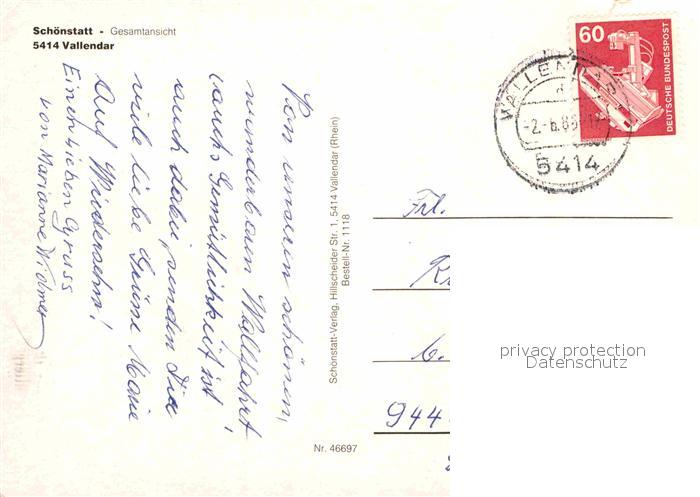 Schönstatt - Gesamtansicht
5414 Vallendar
60
DEUTSCHE BUNDESPOST
VALLENDAR
5414
Von unseren schönen,
wunderbaren Wallfahrt
(auch Gemütlichkeit ist
auch dabei, senden Dir
viele liebe Grüsse Marie
Auf Wiedersehn!
Einen lieben Gruss
von Marianne Widmer
Schönstatt-Verlag, Hillscheider Str. 1, 5414 Vallendar (Rhein)
Bestell-Nr. 1118
Nr. 46697
Frl.
944
privacy protection
Datenschutz